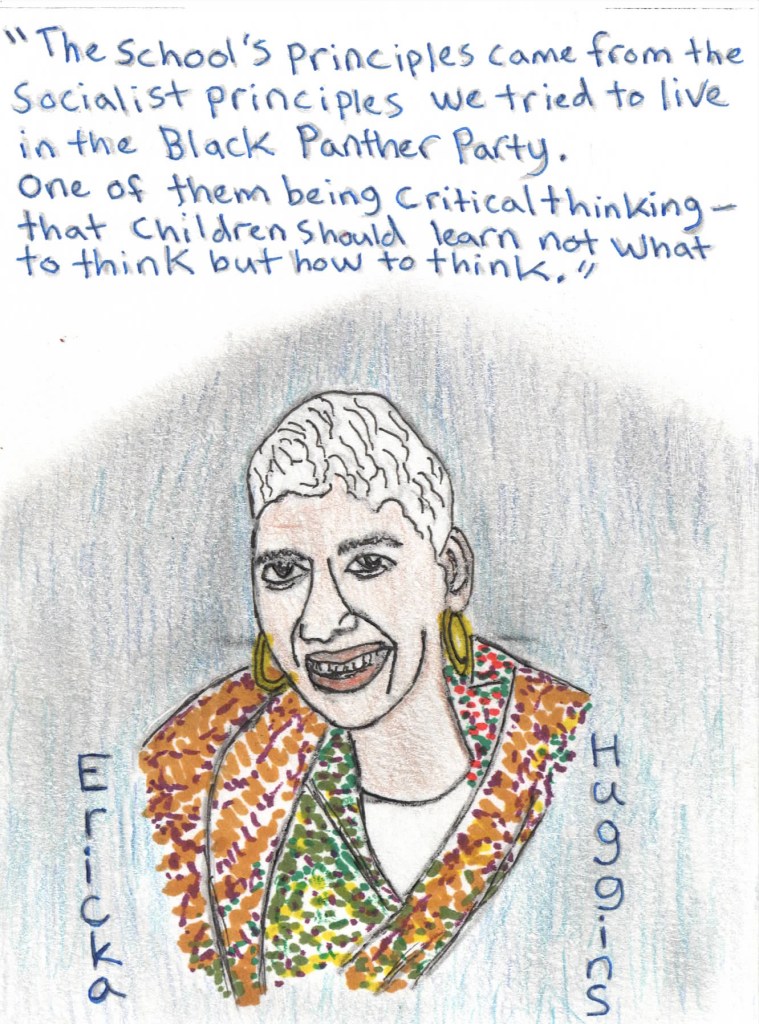 "The School's principles came from the
Socialist principles we tried to live
in the Black Panther Party.
One of them being critical thinking-
that children should learn not what
to think but how to think."
Ericka
Huggins